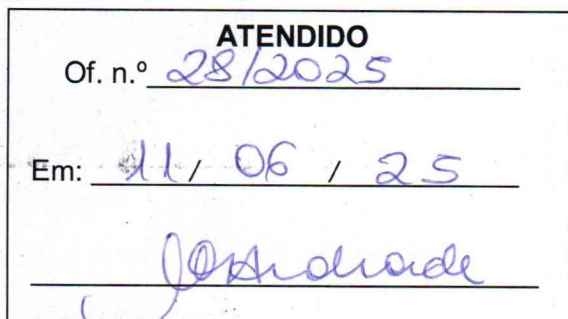 ATENDIDO
Of. n.º 28/2025
Em: 11 / 06 / 25